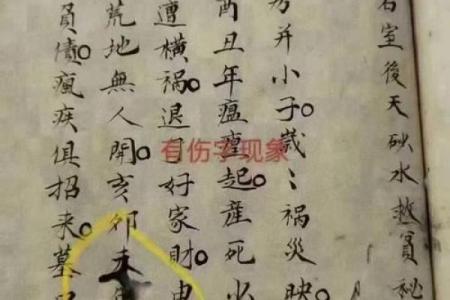 石室後天砂水趨貧秘
方并小子歲:禍災映
酉丑年瘟𤺥起產死少
遭橫禍退了好家財
荒地無人開亥卯未
負債瘋疾俱招来墓
有伤字现象